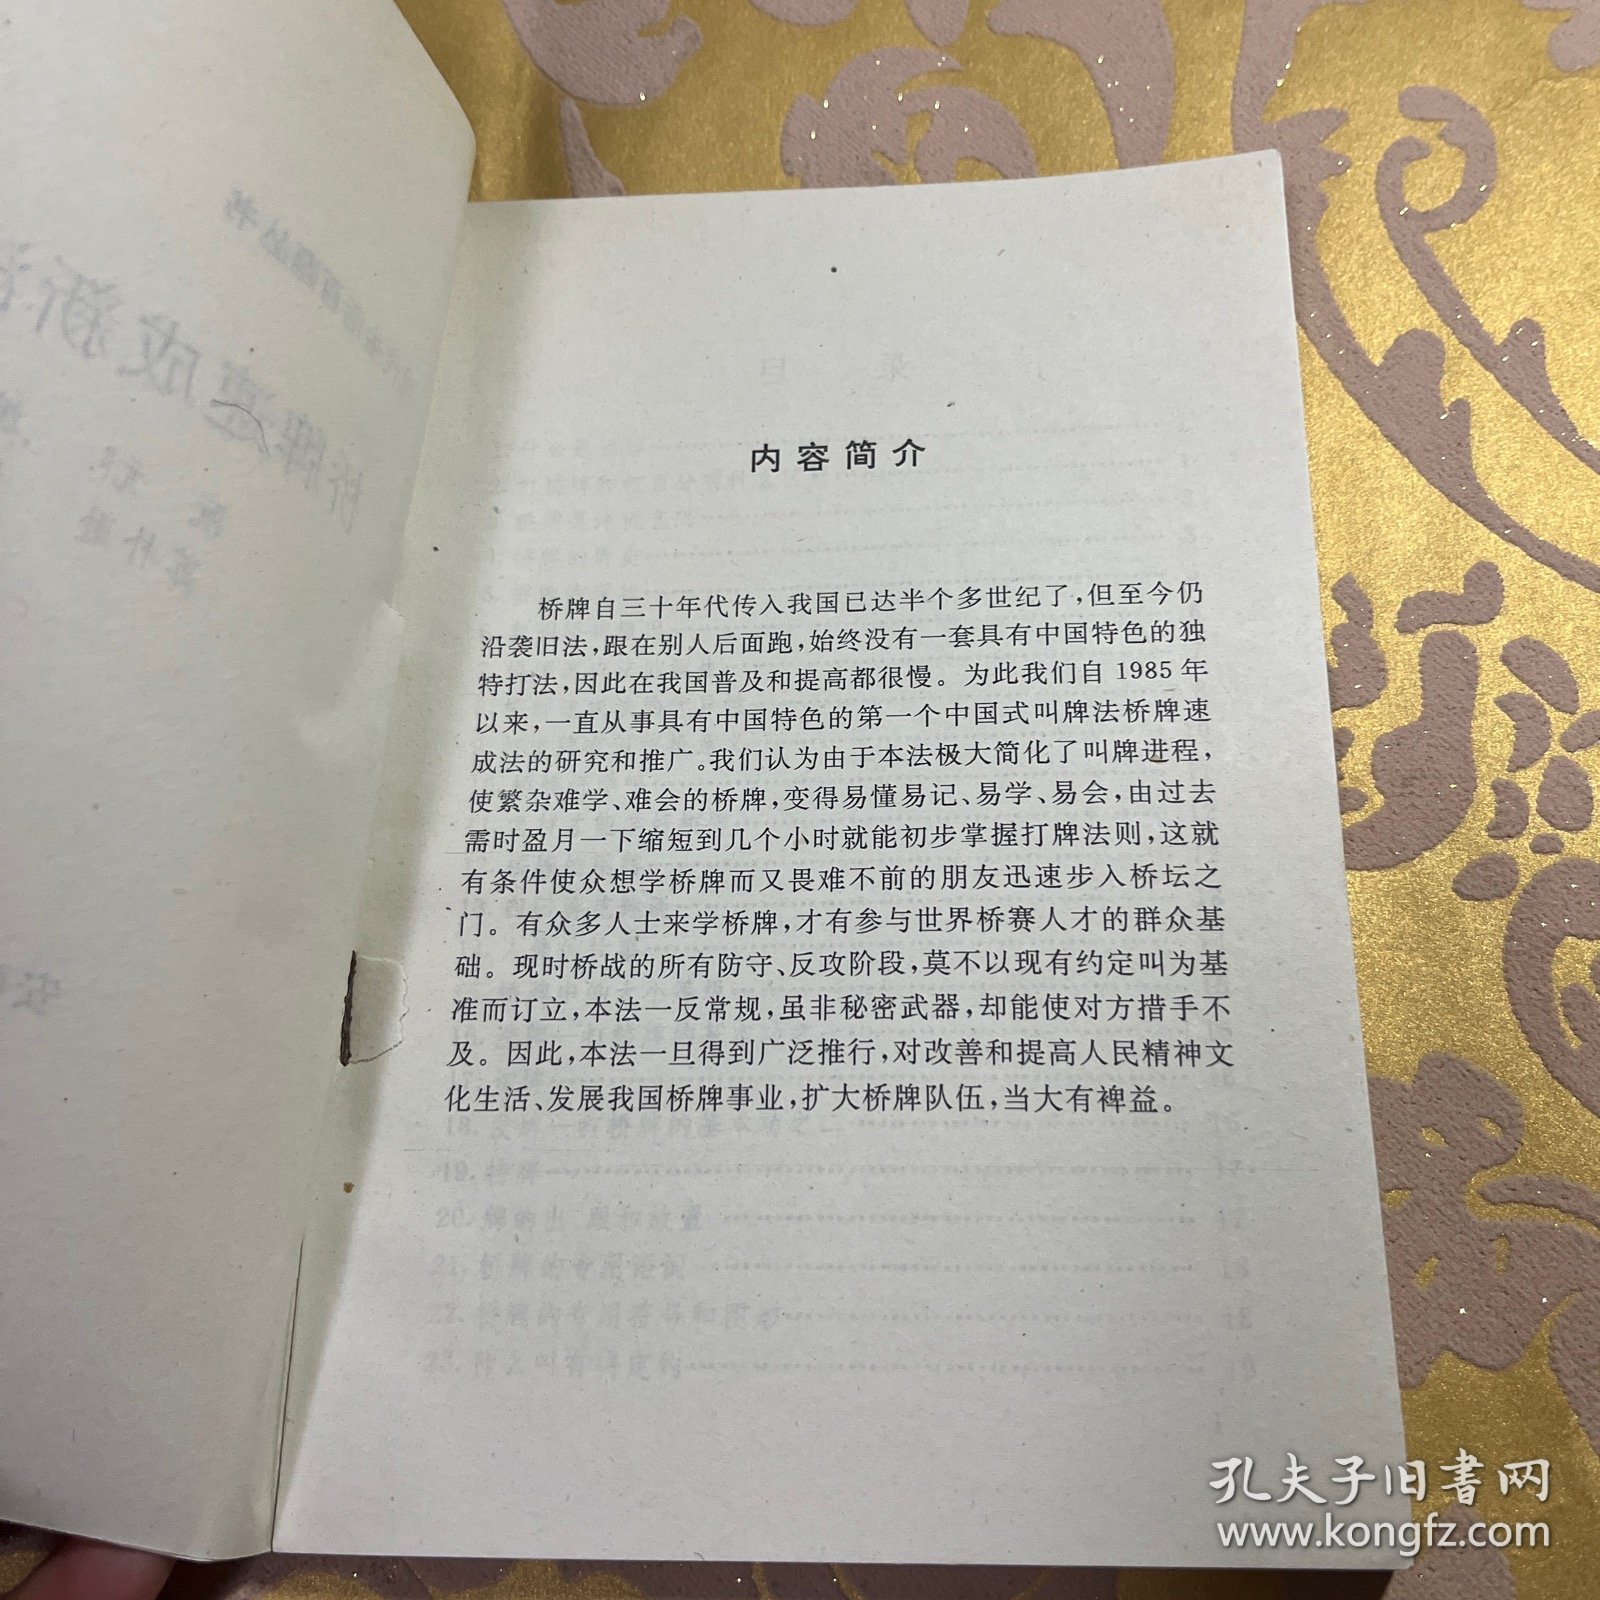 内容简介
桥牌自三十年代传入我国已达半个多世纪了，但至今仍
沿袭旧法，跟在别人后面跑，始终没有一套具有中国特色的独
特打法，因此在我国普及和提高都很慢。为此我们自1985年
以来，一直从事具有中国特色的第一个中国式叫牌法桥牌速
成法的研究和推广。我们认为由于本法极大简化了叫牌进程，
使繁杂难学、难会的桥牌，变得易懂易记、易学、易会，由过去
需时盈月一下缩短到几个小时就能初步掌握打牌法则，这就
有条件使众想学桥牌而又畏难不前的朋友迅速步入桥坛之
门。有众多人士来学桥牌，才有参与世界桥赛人才的群众基
础。现时桥战的所有防守、反攻阶段，莫不以现有约定叫为基
准而订立，本法一反常规，虽非秘密武器，却能使对方措手不
及。因此，本法一旦得到广泛推行，对改善和提高人民精神文
化生活、发展我国桥牌事业，扩大桥牌队伍，当大有裨益。
孔夫子旧书网
www.kongfz.com